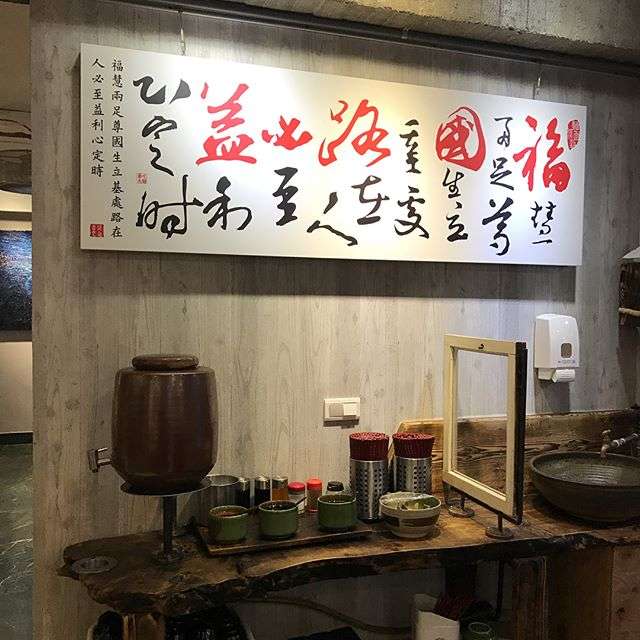 福慧
兩足尊
國生立
基處
路在人
必至
益利
心定時
福慧兩足尊國生立基處路在
人必至益利心定時